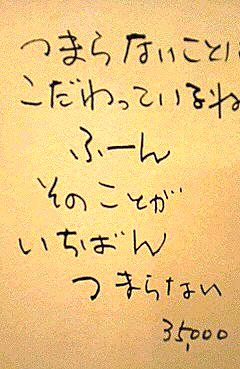 つまらないことに
こだわっているね
ふーん
そのことが
いちばん
つまらない
35,000